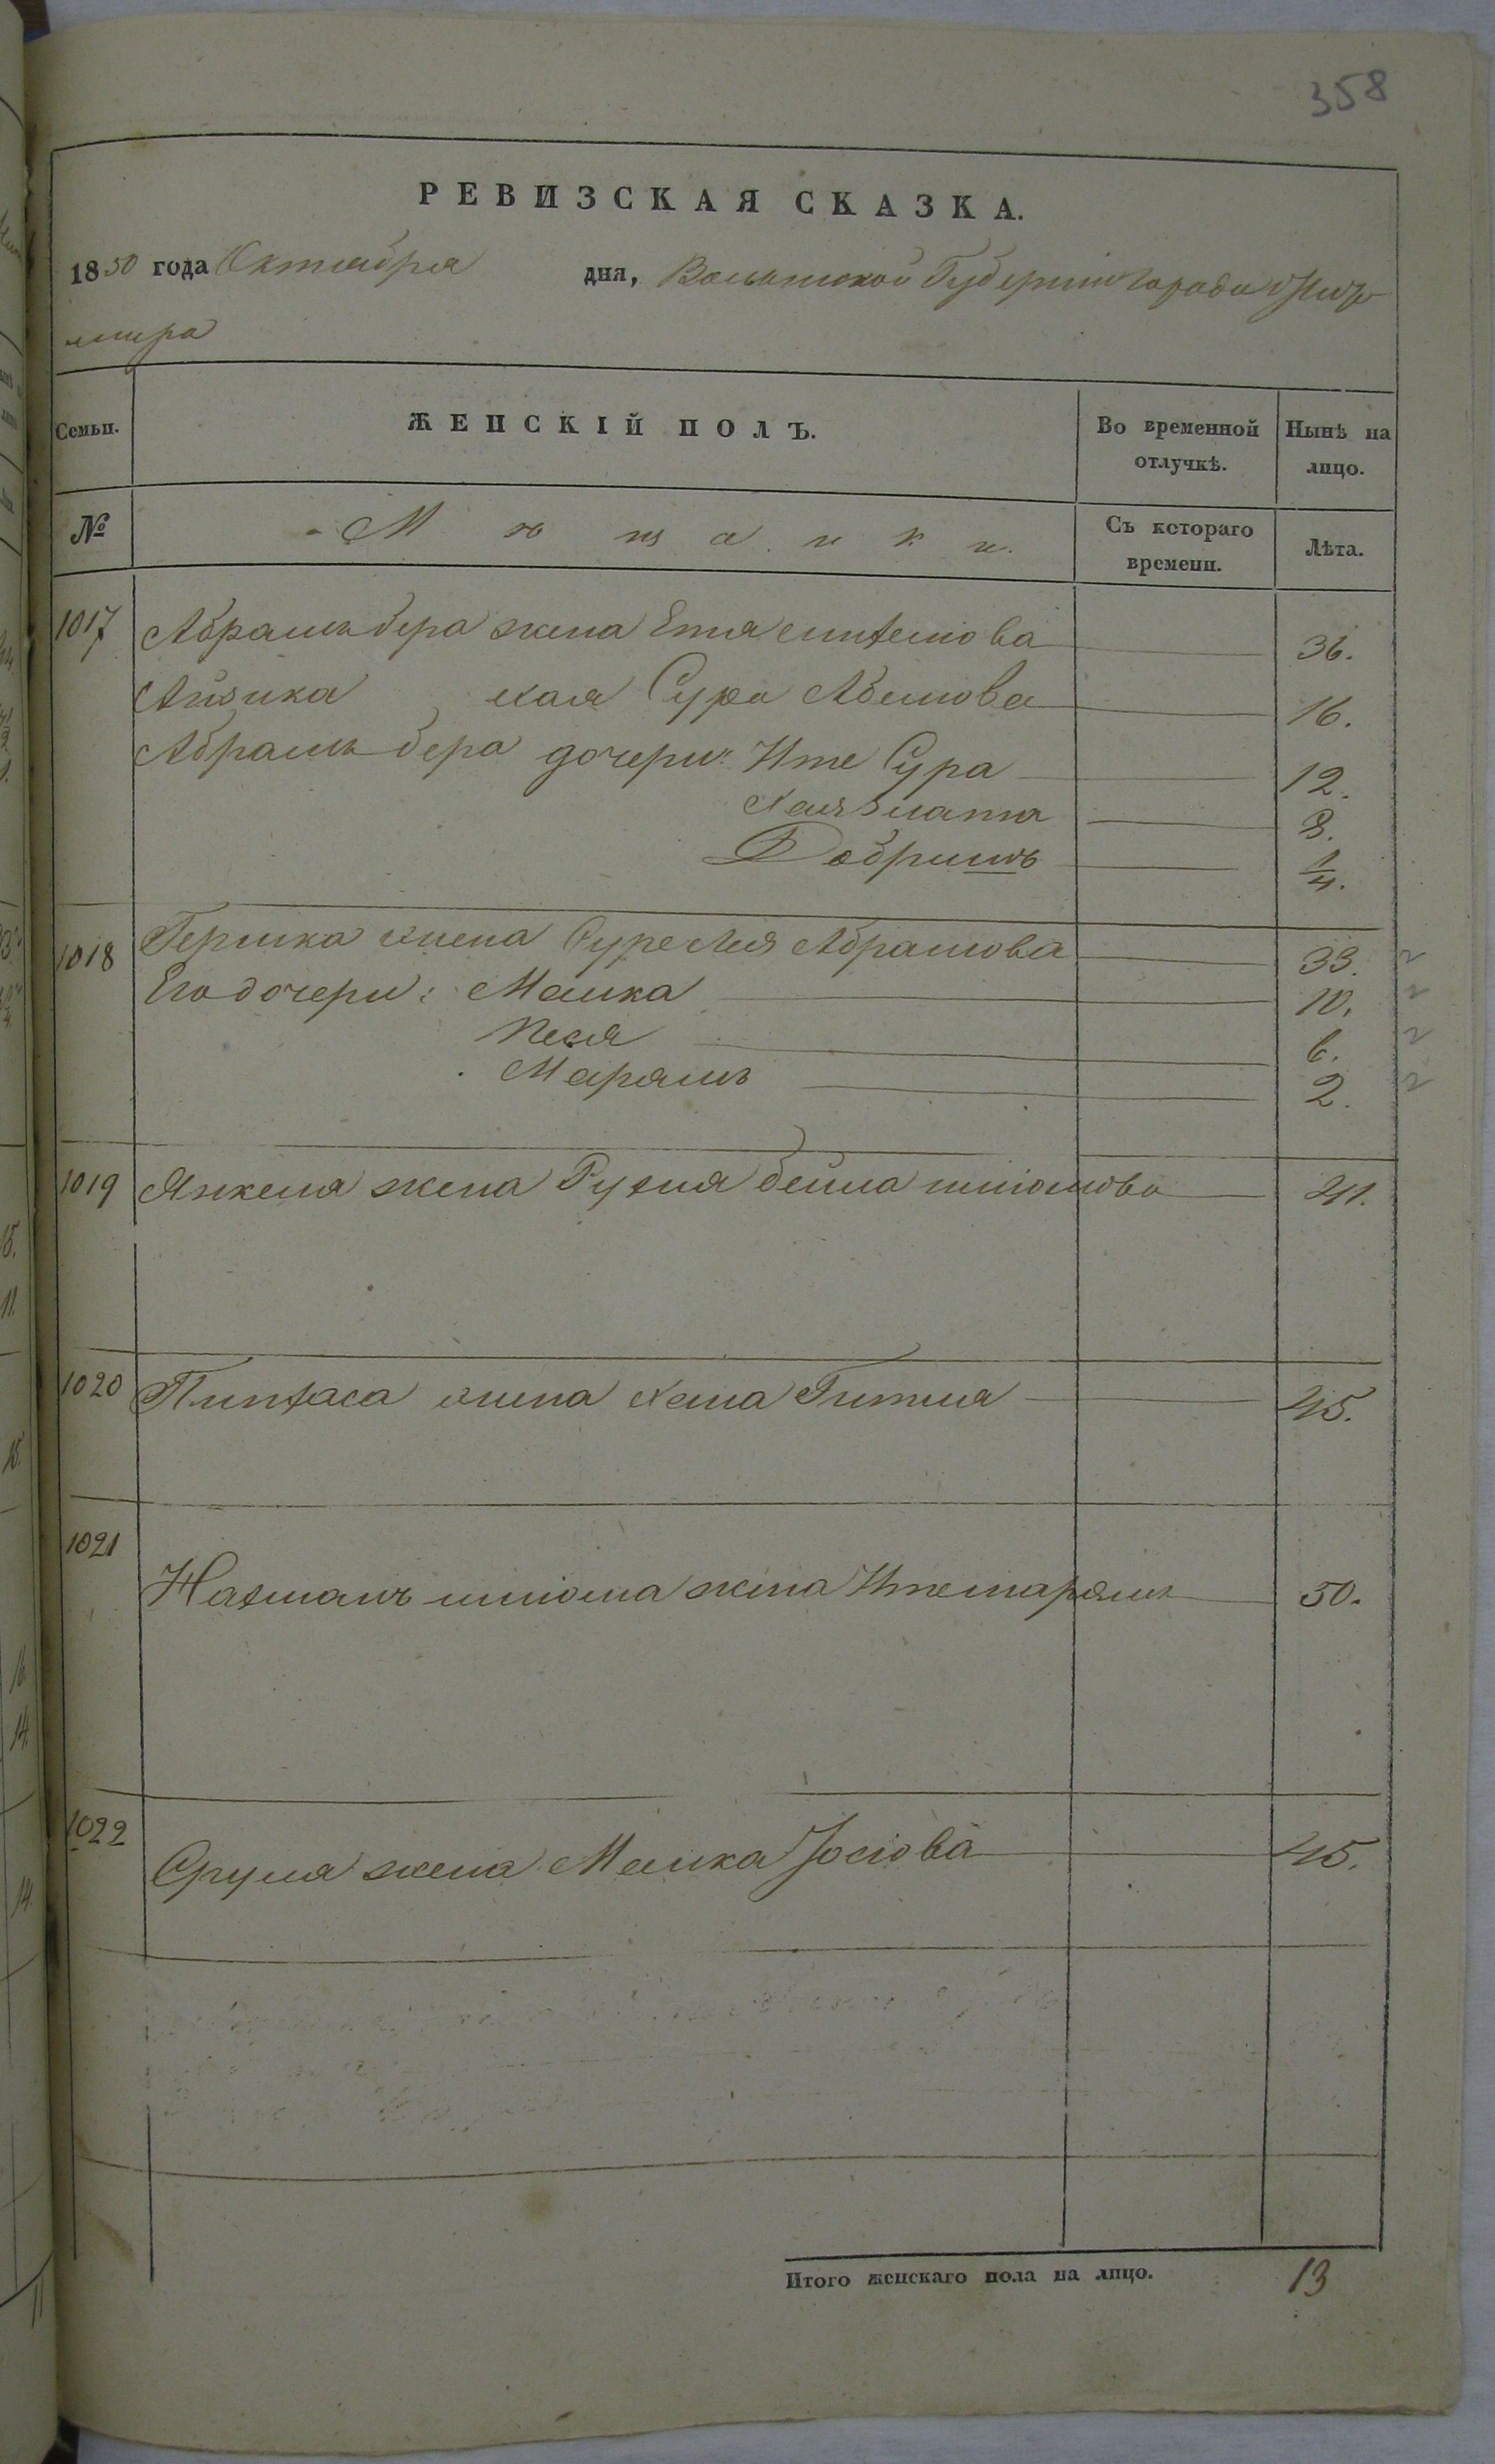 358
РЕВИЗСКАЯ СКАЗКА.
1850 года Октября дня, Волынской Губернии города Жито
мира
Семьи. ЖЕНСКІЙ ПОЛЪ. Во временной отлучкѣ. Нынѣ на лицо.
№ Мѣщанки. Съ котораго времени. Лѣта.
1017 Абрамъ бера жена Етя 36.
Айзика Хая Сура Абрамова 16.
Абрамъ бера дочери: Ите Сура 12.
Хая Злата 8.
Добришъ 1/4.
1018 Гершка жена Суре Лея Абрамова 33. 2
Его дочери: Малка 10. 2
Песя 6. 2
Марямъ 2. 2
1019 Янкеля жена Рухля бейла шліомова 41.
1020 Пинхаса жена Хана Гитля 45.
1021
Нахманъ шліома жена Ите марямъ 50.
1022
Сруля жена Малка Іосіова 45.
Итого женскаго пола на лицо. 13